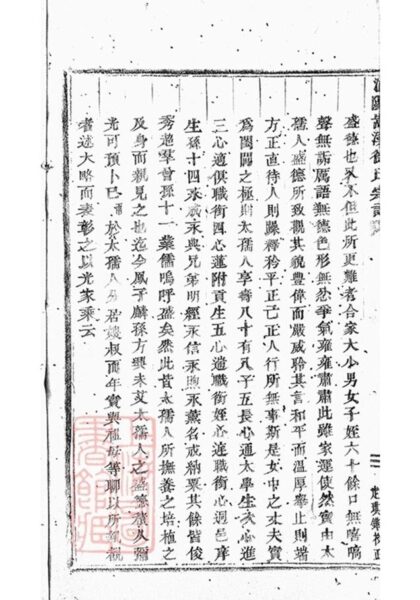 盛德也又不但此所更難者合家大小男女子姪六十餘口無嘻嗃
聲無詬厲語無德色形無忿爭氣雍雍肅肅此雖家運使然實由太
孺人盛德所致觀其貌豊偉而嚴威聆其言和平而溫厚舉止則端
方正直待人則躁釋矜平正己正人行所無事斯是女中之丈夫實
為閨閫之極則太孺人享壽八十有八子五長心通太學生次心進
三心適俱職銜四心蓮附貢生五心適職銜姪心近職銜心迥邑庠
生孫十四永成永興兄弟明經永信永煦永薰名成納粟其餘皆俊
秀超羣曾孫十一蘂儒嗚呼盛矣然此皆太孺人所撫養之培植之
及身而親見之也迄今鳳子麟孫方興未艾太孺人之盛業積久彌
光可預卜已於太孺人為君嫂叔而年實與相等聊以所親
者述大略而表彰之以光家乘云